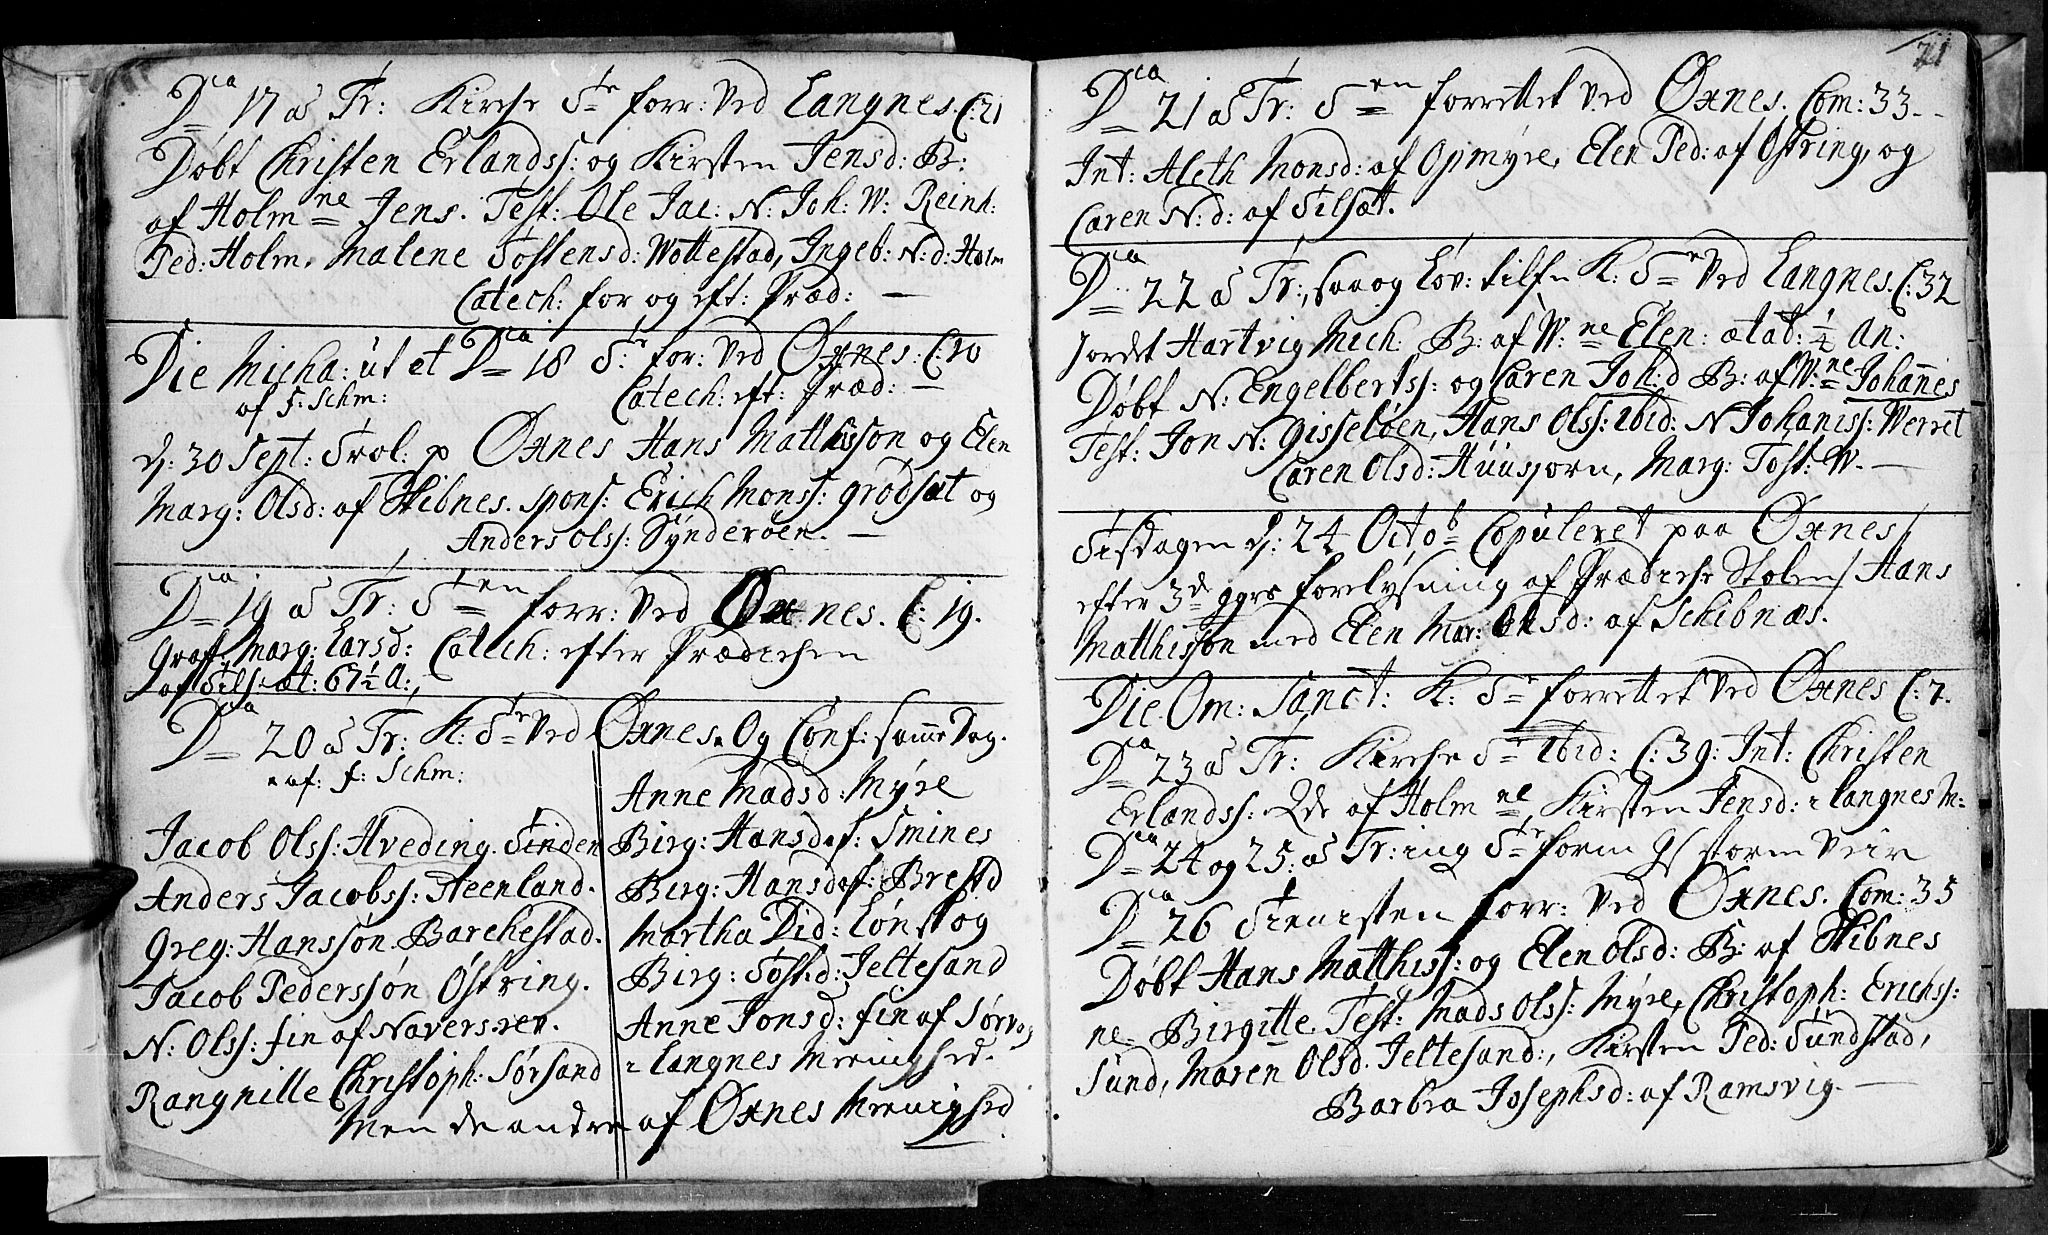 Dca 17 a Tr: Kirche Ste forr: Ved Langnes. C: 21
Døbt Christen Erlandss: og Kirsten Jensd: B:
af Holm ne Jens. Test: Ole Jac: N: Joh: W: Reinh:
Ped: Holm, Malene Tostensd: Wottestad, Ingeb: N: d: Holm
Catech: for og eft: Præd: —
Die Micha: ut et Dca 18 Ste for: Ved Øxnes: C: 20
af F: Schm: Catech: eft: Præd: —
d: 30 Sept: Trol: p Øxnes Hans Matthisson og Elen
Marg: Olsd: af Skibnes. spons: Erich Monss: grodsæt og
Anders Olss: Synderøen. —
Dca 19 a Tr: Sten forr: Ved Øxnes. C: 19.
Graf: Marg: Larsd: Catech: efter Prædichen
af Tils: æt: 67 1/2 A:,
Dca 20 a Tr: K: Ste Ved Øxnes. Og Conf: samme Dag.
af: F: Schm:
Jacob Olss: Hveding. Tinden
Anders Jacobss: Steenland.
Greg: Hanssøn Barchestad.
Jacob Pederssøn Østring.
N: Olss: fin af Naversren.
Rangnille Christoph: Sørsand
Anne Madsd: Myre
Birg: Hansd: f: Smines
Birg: Hansd af: Brestd
Martha Did: Lønskog
Birg: Tostd: Jeltesand
Anne Jonsd: fin af Sørvog
i Langnes Meenighed.
Men de andre af Øxnes Meenighed
71
Dca 21 a Tr: Sten forrettet Ved Øxnes. Com: 33 --
Int: Aleth Monsd: af Opmyre, Elen Ped: af Østring, og
Caren N: d: af Tilsæt.
Dca 22 a Tr:, saa og Løv: tilfn K: Ste Ved Langnes. C: 32
Jordet Hartvig Mich: B: af W: ne Elen: ætat: 1/4 An:
Døbt N: Engelbertss: og Caren Joh: d B: af W: ne Johannes
Test: Jon N: Gisseløen, Hans Olss: ibid: N Johaniss: Werret
Caren Olsd: Huusjorn, Marg: Tost: W. —
Tisdagen d: 24 Octob Copuleret paa Øxnes /
efter 3de ggrs forelysning af Prædiche Stolen / Hans
Matthisson med Elen Mar: Olsd: af Schibnæs.
Die Om: Sanct: K: Ste forrettet Ved Øxnes C: 7.
Dca 23 a Tr: Kirche Ste ibid: C: 39: Int: Christen
Erlandss: Qde af Holm ne, Kirsten Jensd: i Langnes M:
Dca 24 og 25: a Tr: ing Ste form storm Veir
Dca 26 Tienisten forr: Ved Øxnes. Com: 35
Døbt Hans Matthiss: og Elen Olsd: B: af Skibnes
ne: Birgitte. Test: Mads Olss: Myre, Christoph: Erichss:
Sund, Maren Olsd. Jeltesand:, Kirsten Ped: Sundstad,
Barbra Josephsd: af Ramsvig. —